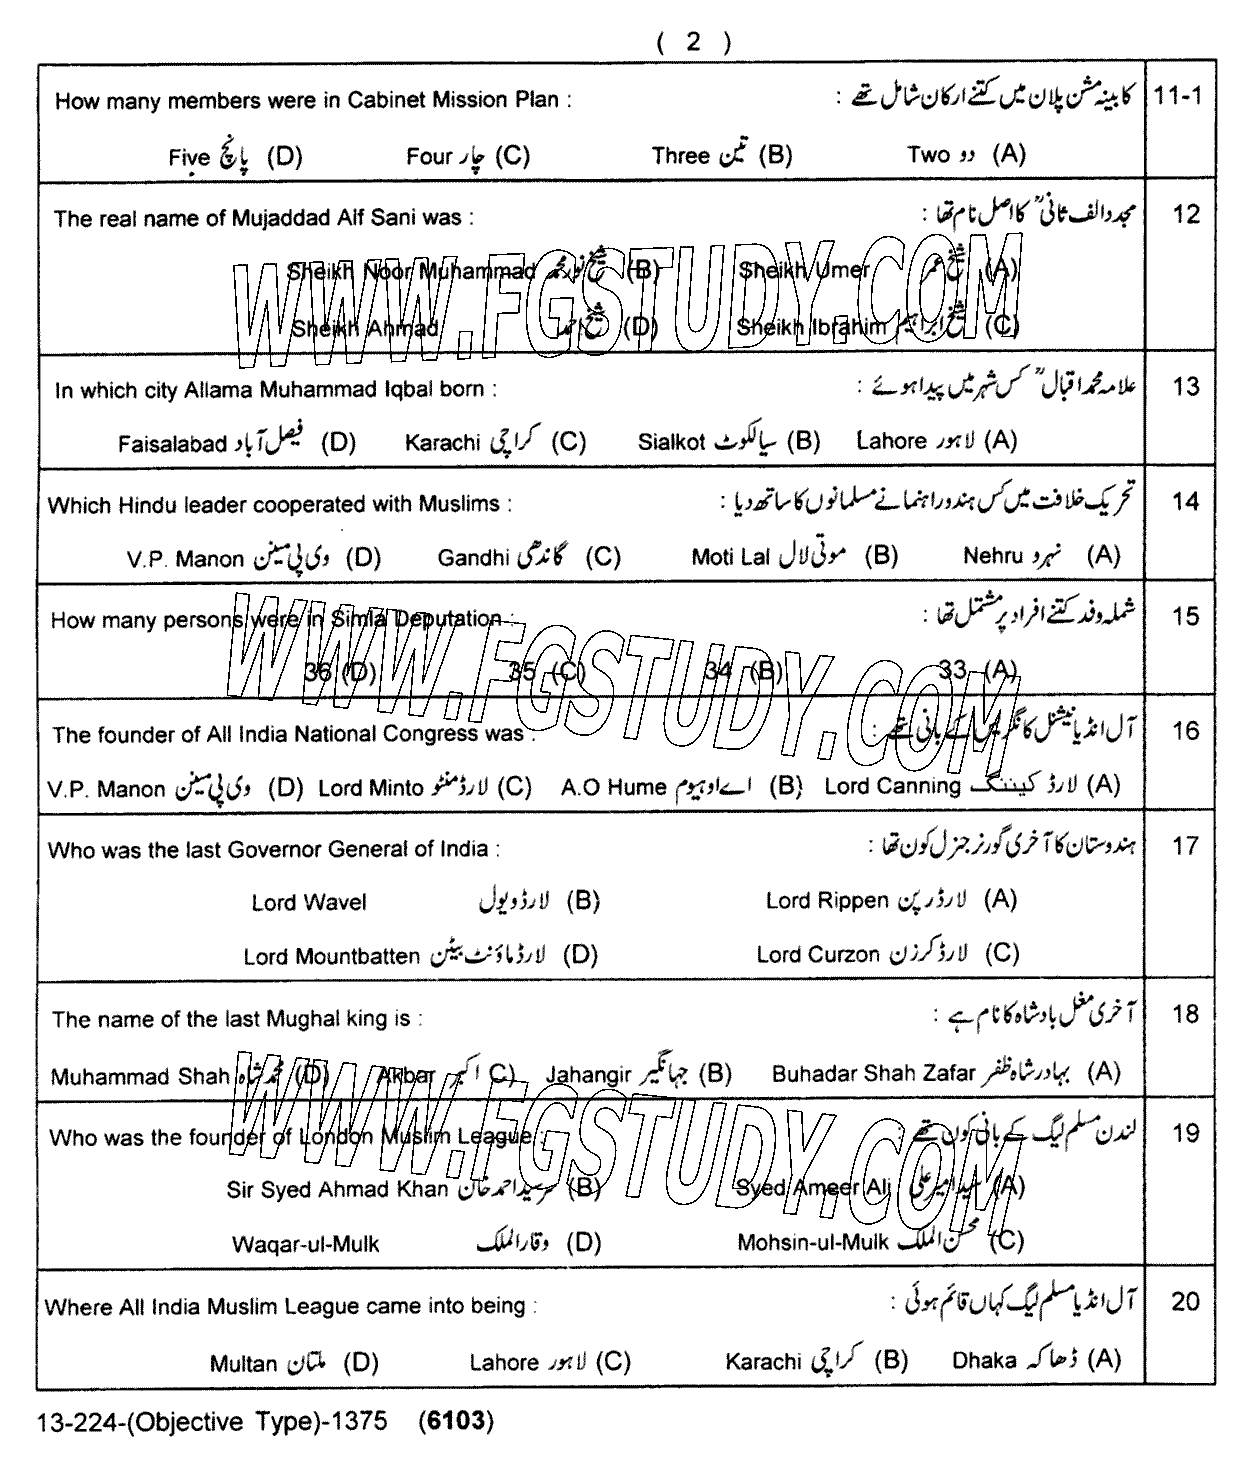 ( 2 )
How many members were in Cabinet Mission Plan : کابینہ مشن پلان میں کتنے ارکان شامل تھے : 11-1
Five پانچ (D) Four چار (C) Three تین (B) Two دو (A)
The real name of Mujaddad Alf Sani was : مجدد الف ثانیؒ کا اصل نام تھا : 12
Sheikh Noor Muhammad شیخ نور محمد (B) Sheikh Umer شیخ عمر (A)
Sheikh Ahmad شیخ احمد (D) Sheikh Ibrahim شیخ ابراہیم (C)
WWW.FGSTUDY.COM
In which city Allama Muhammad Iqbal born : علامہ محمد اقبالؒ کس شہر میں پیدا ہوئے : 13
Faisalabad فیصل آباد (D) Karachi کراچی (C) Sialkot سیالکوٹ (B) Lahore لاہور (A)
Which Hindu leader cooperated with Muslims : تحریک خلافت میں کس ہندو راہنما نے مسلمانوں کا ساتھ دیا : 14
V.P. Manon وی پی مینن (D) Gandhi گاندھی (C) Moti Lal موتی لال (B) Nehru نہرو (A)
How many persons were in Simla Deputation : شملہ وفد کتنے افراد پر مشتمل تھا : 15
36 (D) 35 (C) 34 (B) 33 (A)
WWW.FGSTUDY.COM
The founder of All India National Congress was : آل انڈیا نیشنل کانگریس کے بانی تھے : 16
V.P. Manon وی پی مینن (D) Lord Minto لارڈ منٹو (C) A.O Hume اے او ہیوم (B) Lord Canning لارڈ کیننگ (A)
Who was the last Governor General of India : ہندوستان کا آخری گورنر جنرل کون تھا : 17
Lord Wavel لارڈ ویول (B) Lord Rippen لارڈ رپن (A)
Lord Mountbatten لارڈ ماؤنٹ بیٹن (D) Lord Curzon لارڈ کرزن (C)
The name of the last Mughal king is : آخری مغل بادشاہ کا نام ہے : 18
Muhammad Shah محمد شاہ (D) Akbar اکبر C) Jahangir جہانگیر (B) Buhadar Shah Zafar بہادر شاہ ظفر (A)
WWW.FGSTUDY.COM
Who was the founder of London Muslim League : لندن مسلم لیگ کے بانی کون تھے : 19
Sir Syed Ahmad Khan سر سید احمد خان (B) Syed Ameer Ali سید امیر علی (A)
Waqar-ul-Mulk وقار الملک (D) Mohsin-ul-Mulk محسن الملک (C)
Where All India Muslim League came into being : آل انڈیا مسلم لیگ کہاں قائم ہوئی : 20
Multan ملتان (D) Lahore لاہور (C) Karachi کراچی (B) Dhaka ڈھاکہ (A)
13-224-(Objective Type)-1375 (6103)